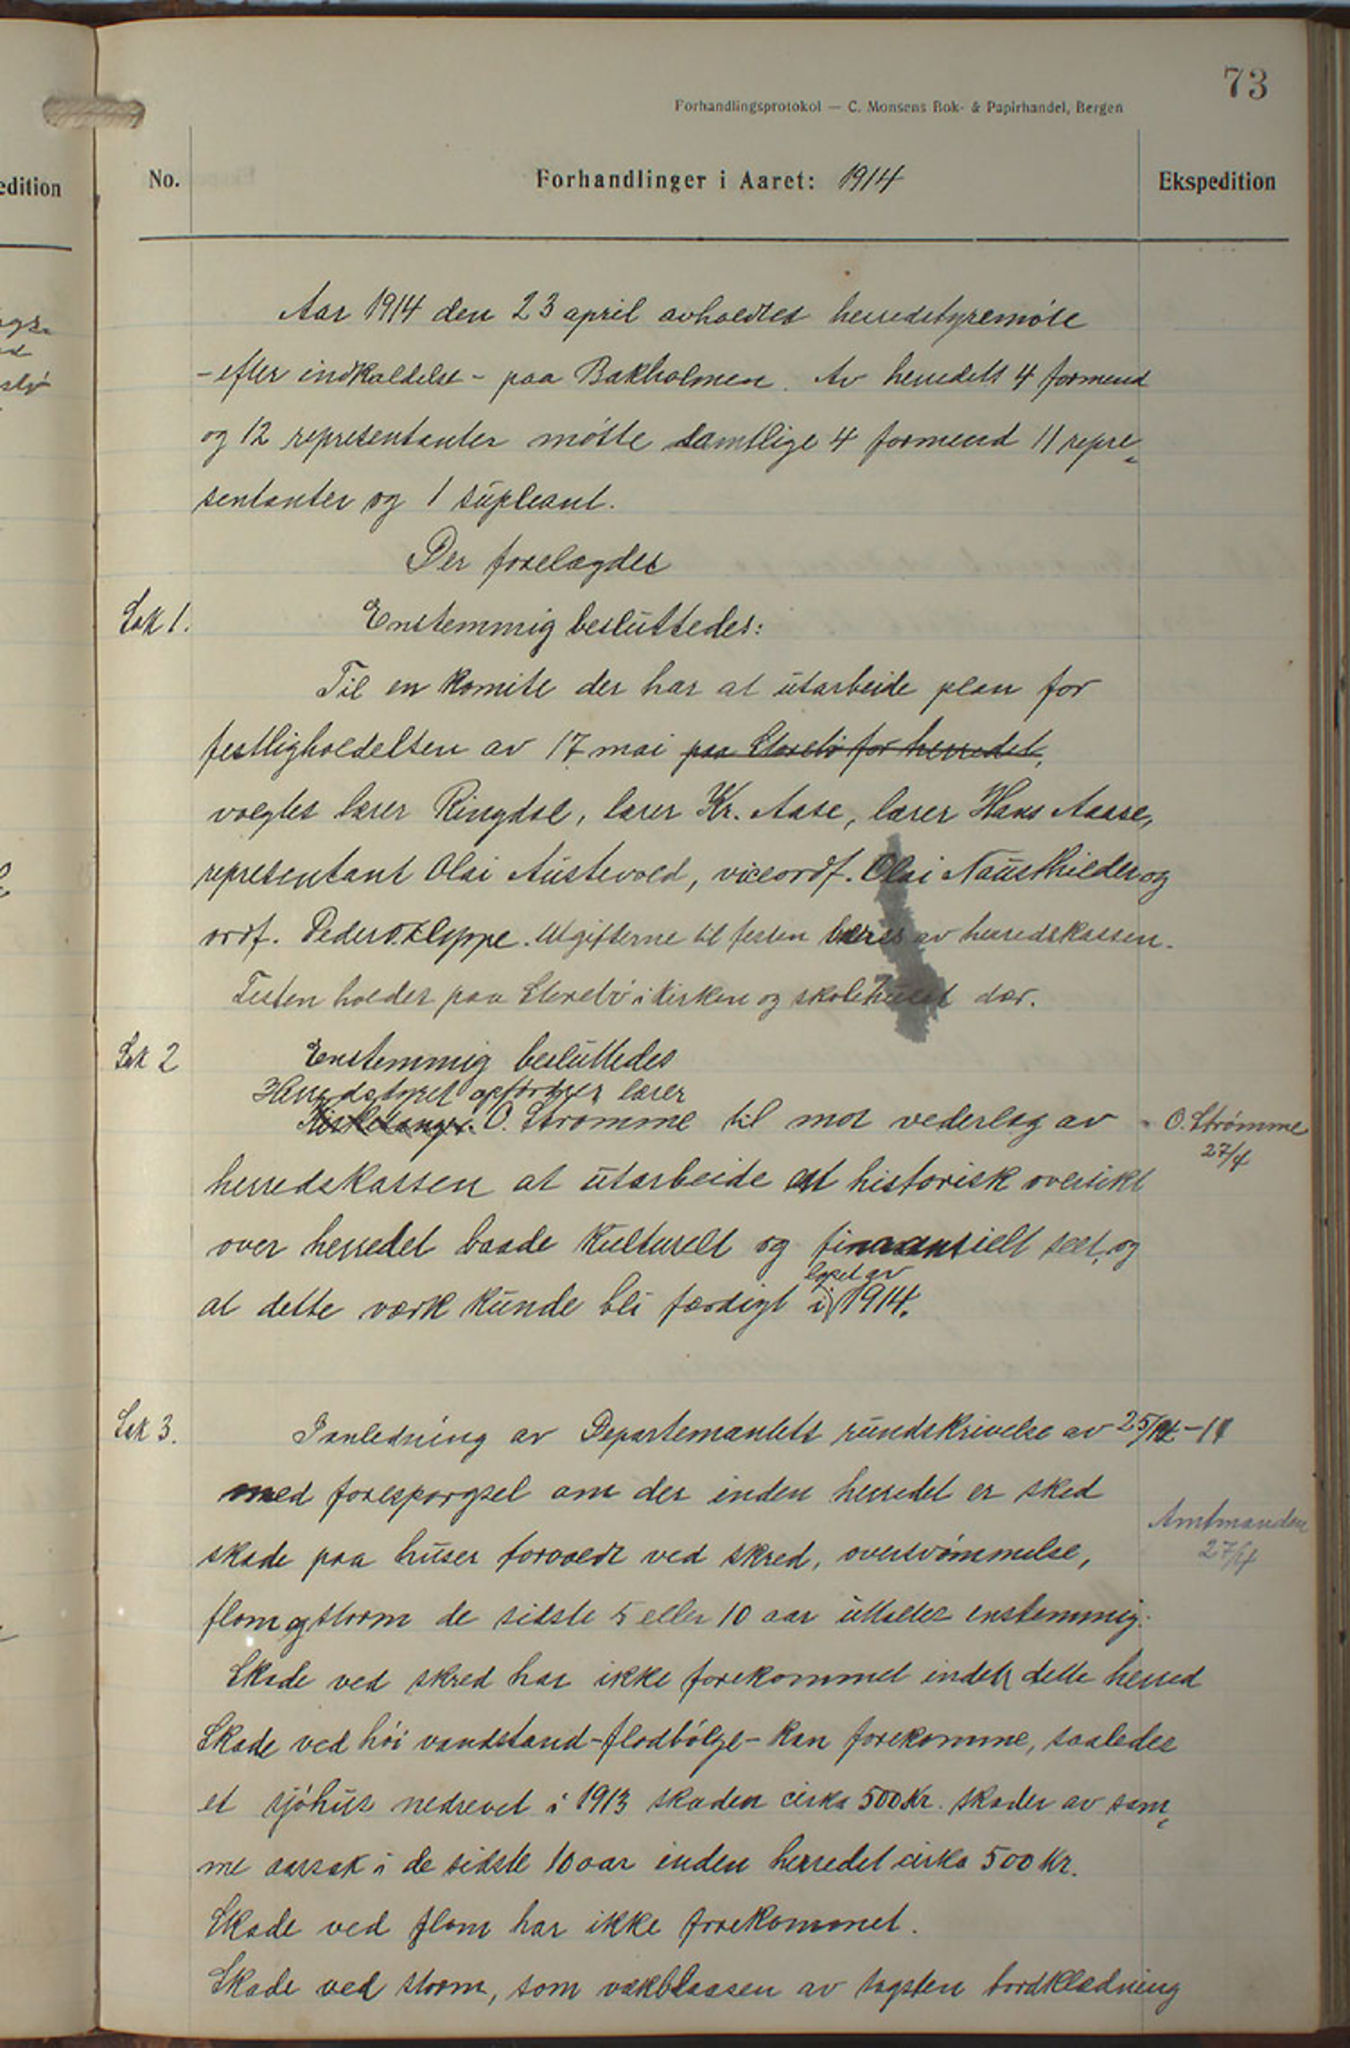 73
Forhandlingsprotokol — C. Monsens Bok- & Papirhandel, Bergen
edition
No.
Forhandlinger i Aaret: 1914
Ekspedition
Aar 1914 den 23 april avholdtes herredstyremöte
- efter indkaldelse - paa Bakholmen. Av herredets 4 formend
og 12 representanter mötte samtlige 4 formend 11 repre„
sentanter og 1 supleant.
Der forelagdes
Sak 1.
Enstemmig besluttedes:
Til en komite der har at utarbeide plan for
festligholdelsen av 17 mai paa Storebö for herredet,
valgtes lærer Ringdal, lærer Kr. Aase, lærer Hans Aaase,
representant Olai Austevold, viceordf. Olai Naustheller og
ordf. Peder O. Kleppe. Utgifterne til festen bæres av herredskassen.
Festen holdes paa Storebö i kirken og skolehuset dær.
Sak 2
Enstemmig besluttedes
Herredstyret opfordrer lærer
Kirkesanger O. Strömme til mot vederlag av
O. Strømme
27/4
herredskassen at utarbeide et historisk oversikt
over herredet baade kulturelt og finansielt set, og
löpet av
at dette værk kunde bli færdigt i 1914.
Sak 3.
I anledning av Departemantets rundskrivelse av
med forespörgsel om der inden herredet er sked
Amtmanden
27/4
skade paa huser forvoldt ved skred, oversvömmelse,
flom og storm de sidste 5 eller 10 aar uttaltes enstemmig:
Skade ved skred har ikke forekommet inden dette herred
Skade ved höi vandstand - flodbölge - kan forekomme, saaledes
et sjöhus nedrevet i 1913 skaden cirka 500 Kr. skader av sam„
me aarsak i de sidste 10 aar inden herredet cirka 500 Kr.
Skade ved flom har ikke forekommet.
Skade ved storm, som vækblaasen av tagsten bordklædning